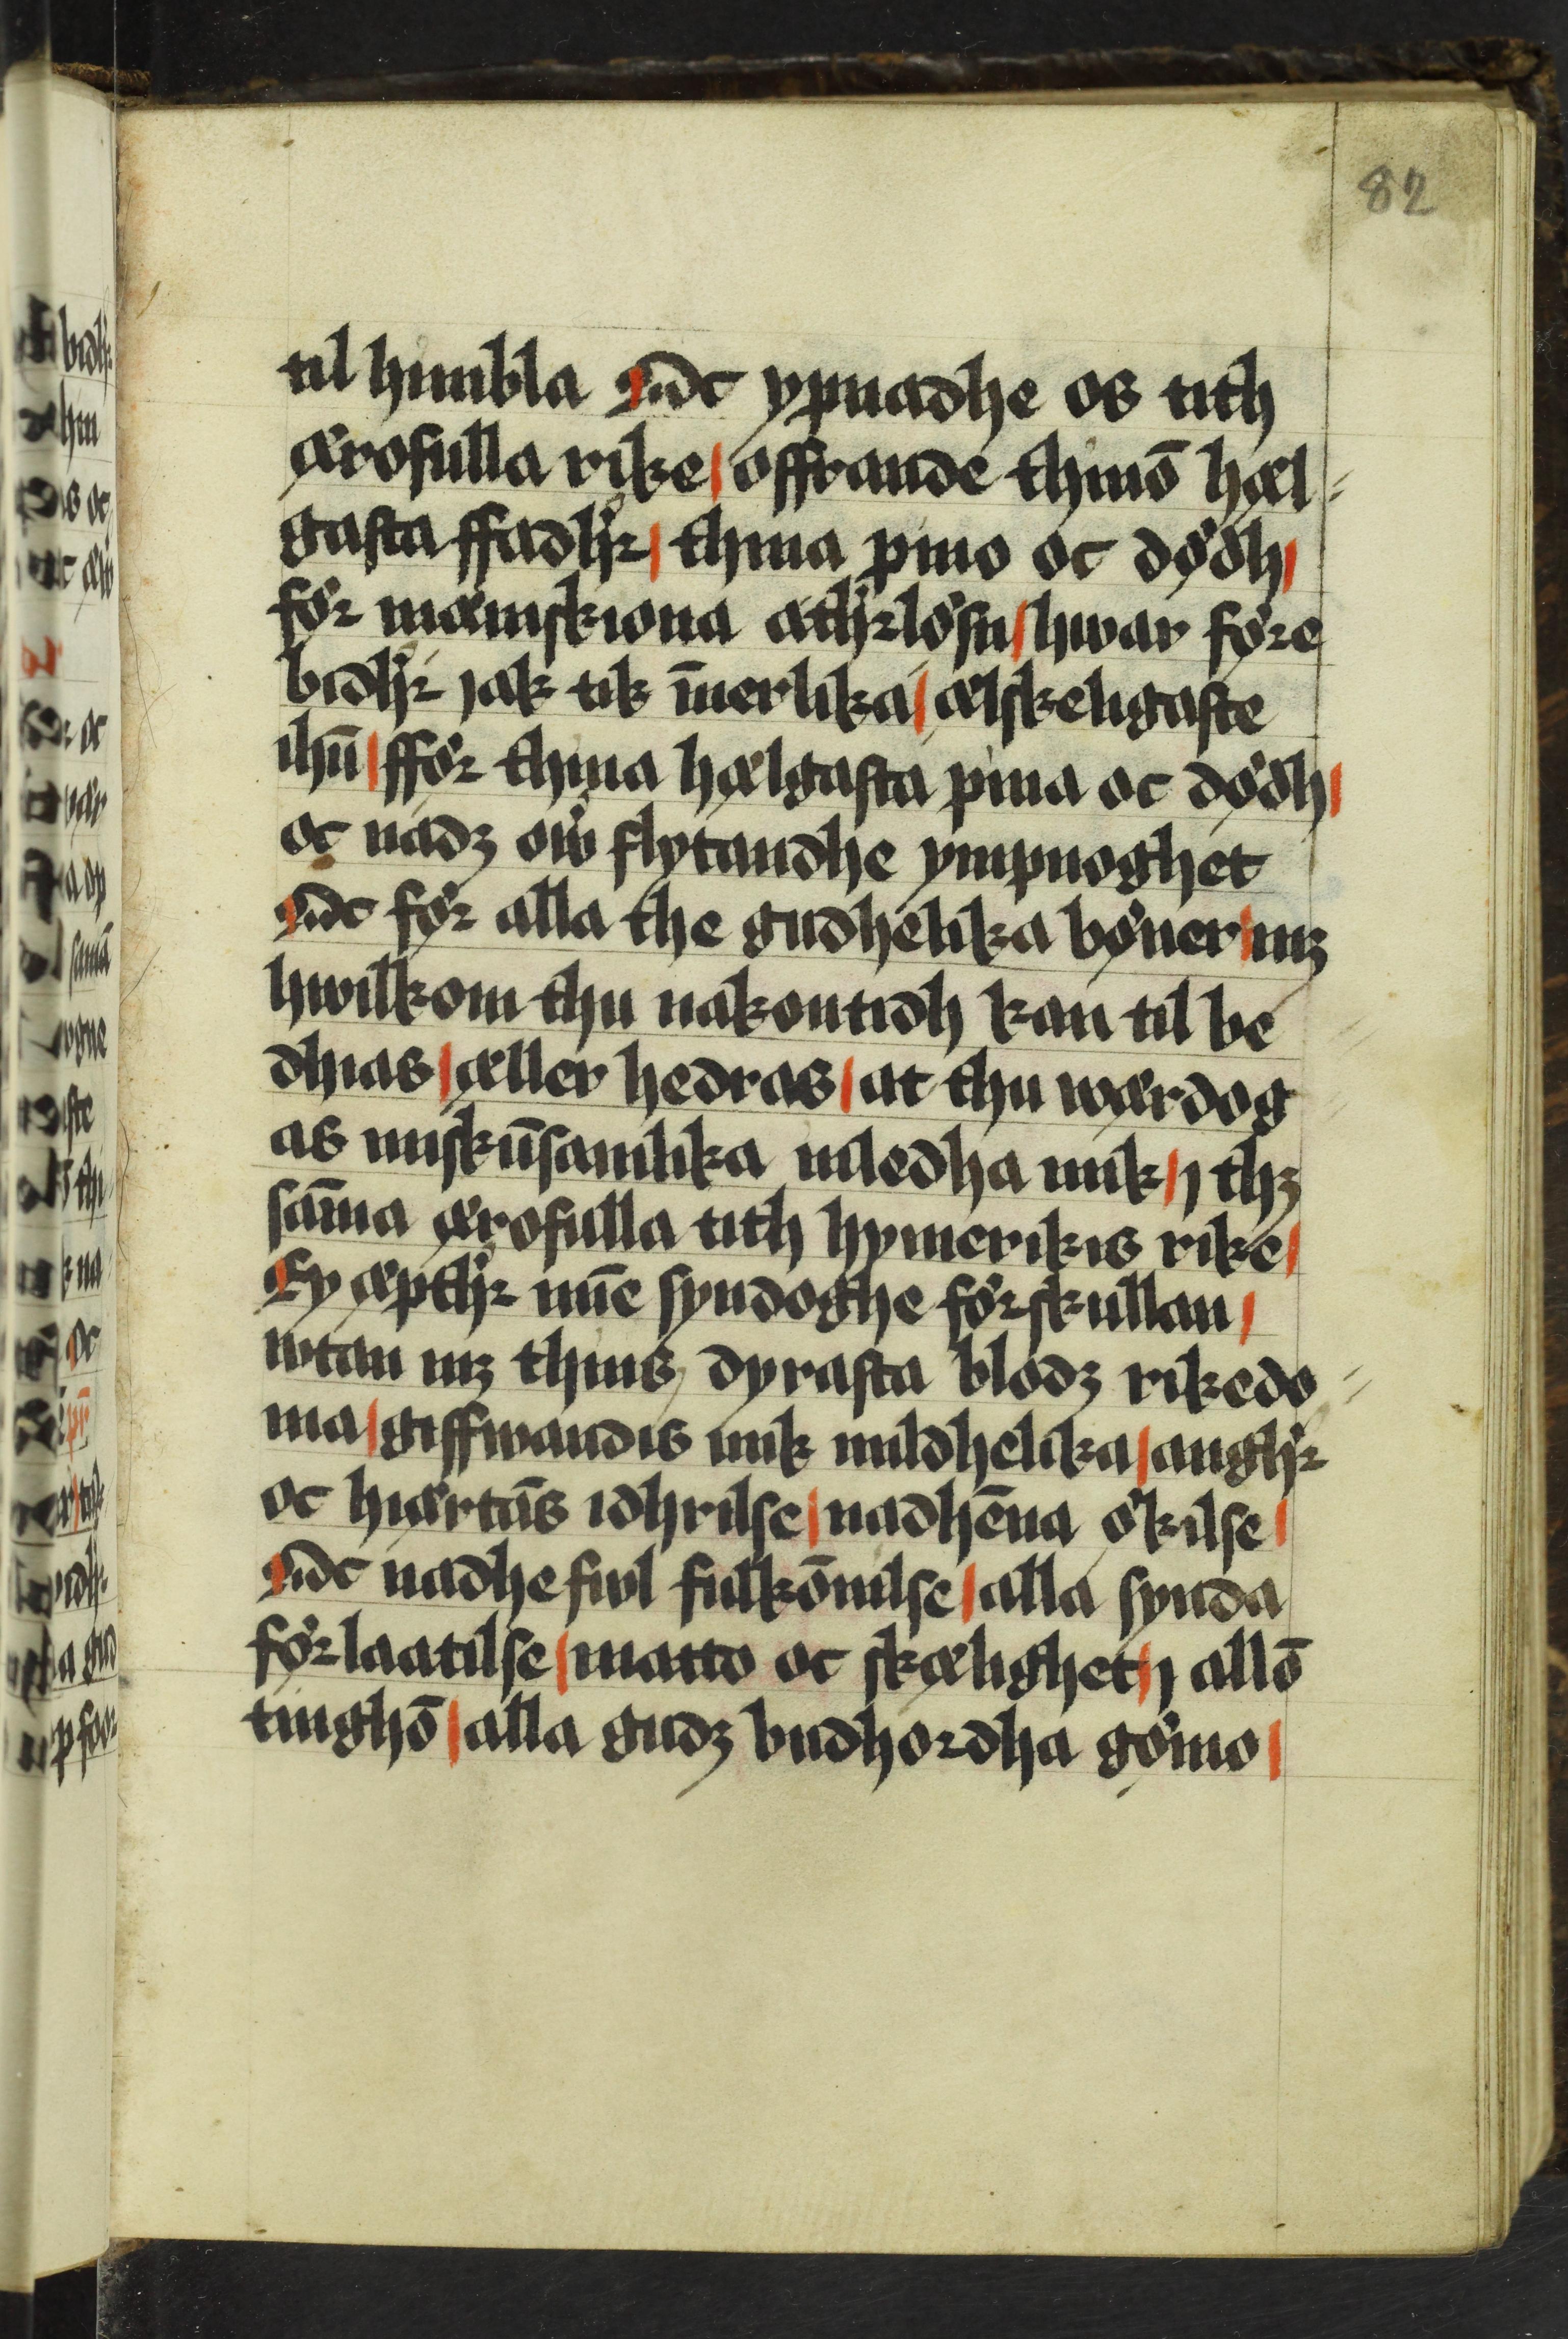 82
til himbla Oc ypnadhe os tith
ærofulla rike offrande thinō hæl⸗
gasta ffadh͛ thina pino oc dödh
för mænniskiona ath͛lösn hwar före
bidh͛ jak tik īnerlika ælskeligaste
ihū ffor thina hælgasta pina oc dödh
oc nadz ow͛ flytandhe ympnoghet
Oc för alla the gudhelika böner mz
hwilkom thu nakontidh kan til be
dhias æller hedras at thu wærdog
as miskūsamlika inledha mik j thz
sāma ærofulla tith hymerikis rike
Ey æpth͛ mīe syndoghe förskullan
wtan mz thins dyrasta blodz rikedo⸗
ma giffwandis mik mildhelika angh͛
oc hiærtās idhrilse nadhēna ökilse
Oc nadhe fwl fulkōnilse alla synda
förlaatilse matto oc skælighet j allō
tinghō alla gudz budhordha gömo